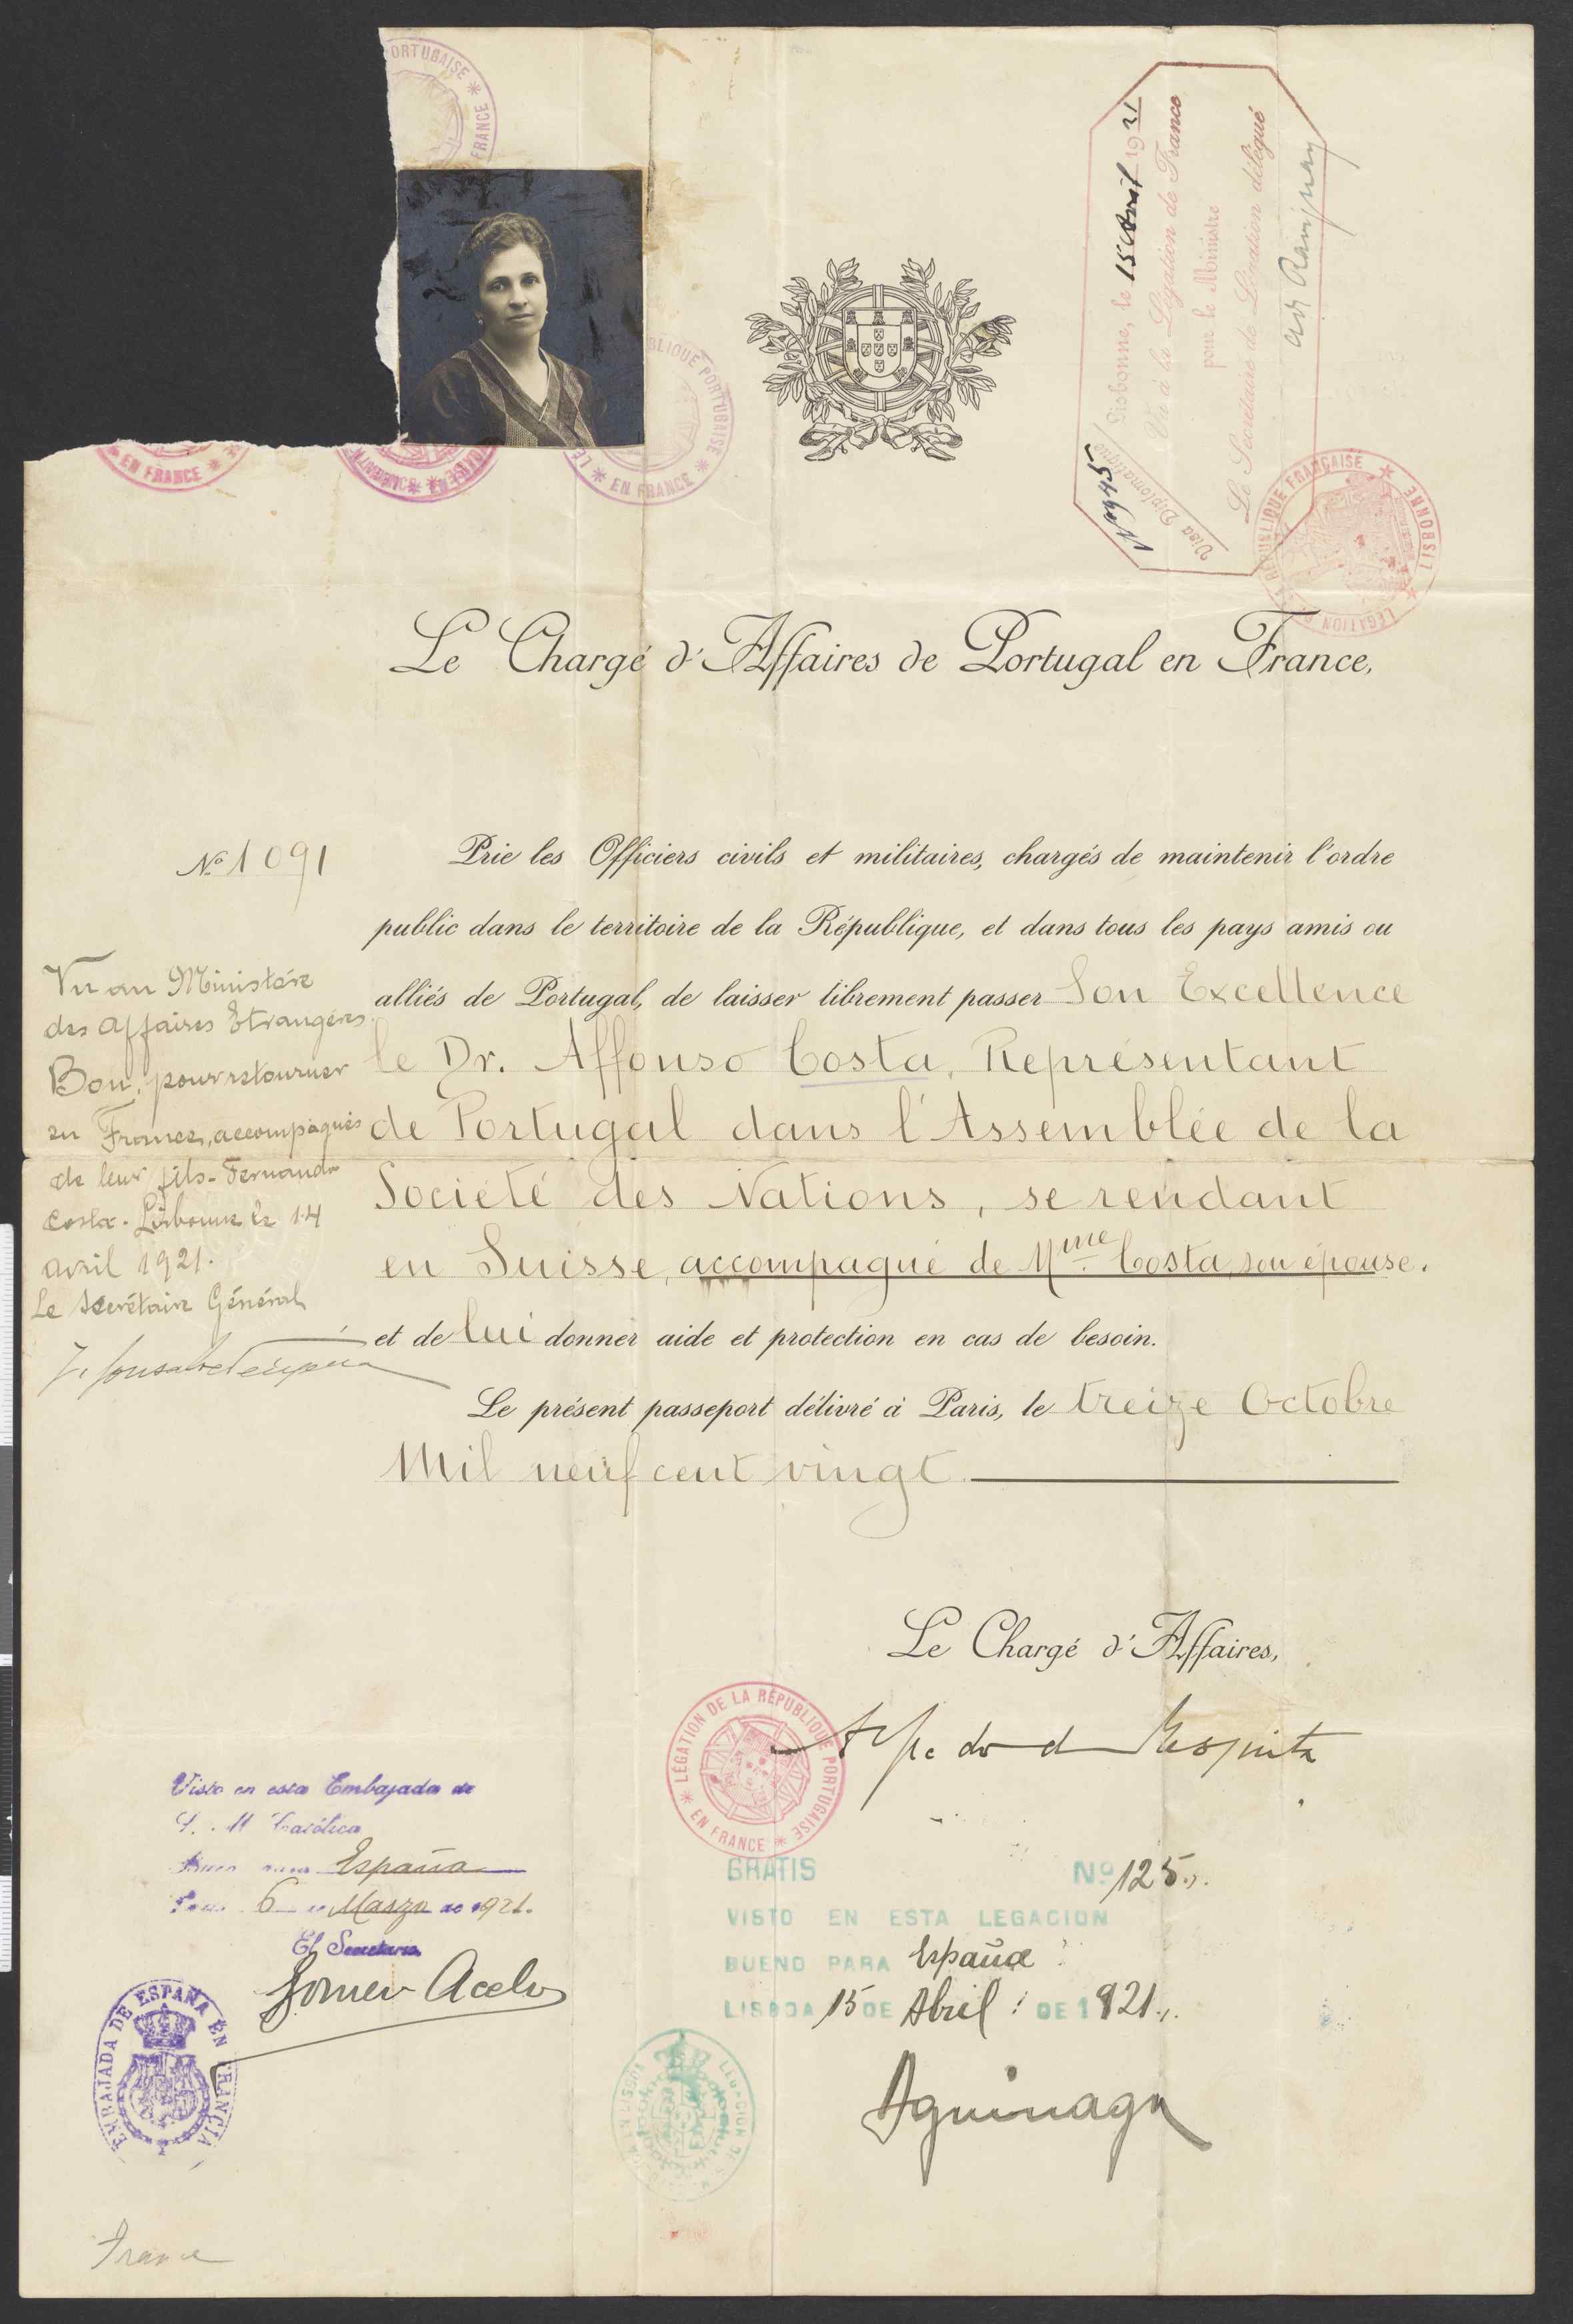 PORTUGAISE * FRANCE
EN FRANCE *
BLIQUE PORTUGAISE * EN FRANCE * LE
Visa Diplomatique
Lisbonne, le 15 Avril 1921
Vu à la Légation de France
pour le Ministre
Le Secrétaire de Légation délégué
RÉPUBLIQUE FRANÇAISE * LISBONNE * LEGATION
Le Chargé d'Affaires de Portugal en France,
No 1091
Prie les Officiers civils et militaires, chargés de maintenir l'ordre
public dans le territoire de la République, et dans tous les pays amis ou
alliés de Portugal, de laisser librement passer Son Excellence
le Dr. Affonso Costa, Représentant
de Portugal dans l'Assemblée de la
Société des Nations, se rendant
en Suisse, accompagné de Mme Costa, son épouse.
et de lui donner aide et protection en cas de besoin.
Le présent passeport délivré à Paris, le treize Octobre
Mil neuf cent vingt.
Vu au Ministère
des Affaires Etrangères
Bon pour retourner
en France, accompagnés
de leur fils - Fernando
Costa. Lisbonne le 14
avril 1921.
Le Secrétaire Général
Le Chargé d'Affaires,
* LÉGATION DE LA RÉPUBLIQUE PORTUGAISE * EN FRANCE
Visto en esta Embajada de
S. M Católica
Bueno para España
6 de Marzo de 1921.
El Secretario
EMBAJADA DE ESPAÑA EN FRANCIA
GRATIS No 125
VISTO EN ESTA LEGACION
BUENO PARA España
LISBOA 15 DE Abril DE 1921
Aguinaga
LEGACION DE
France